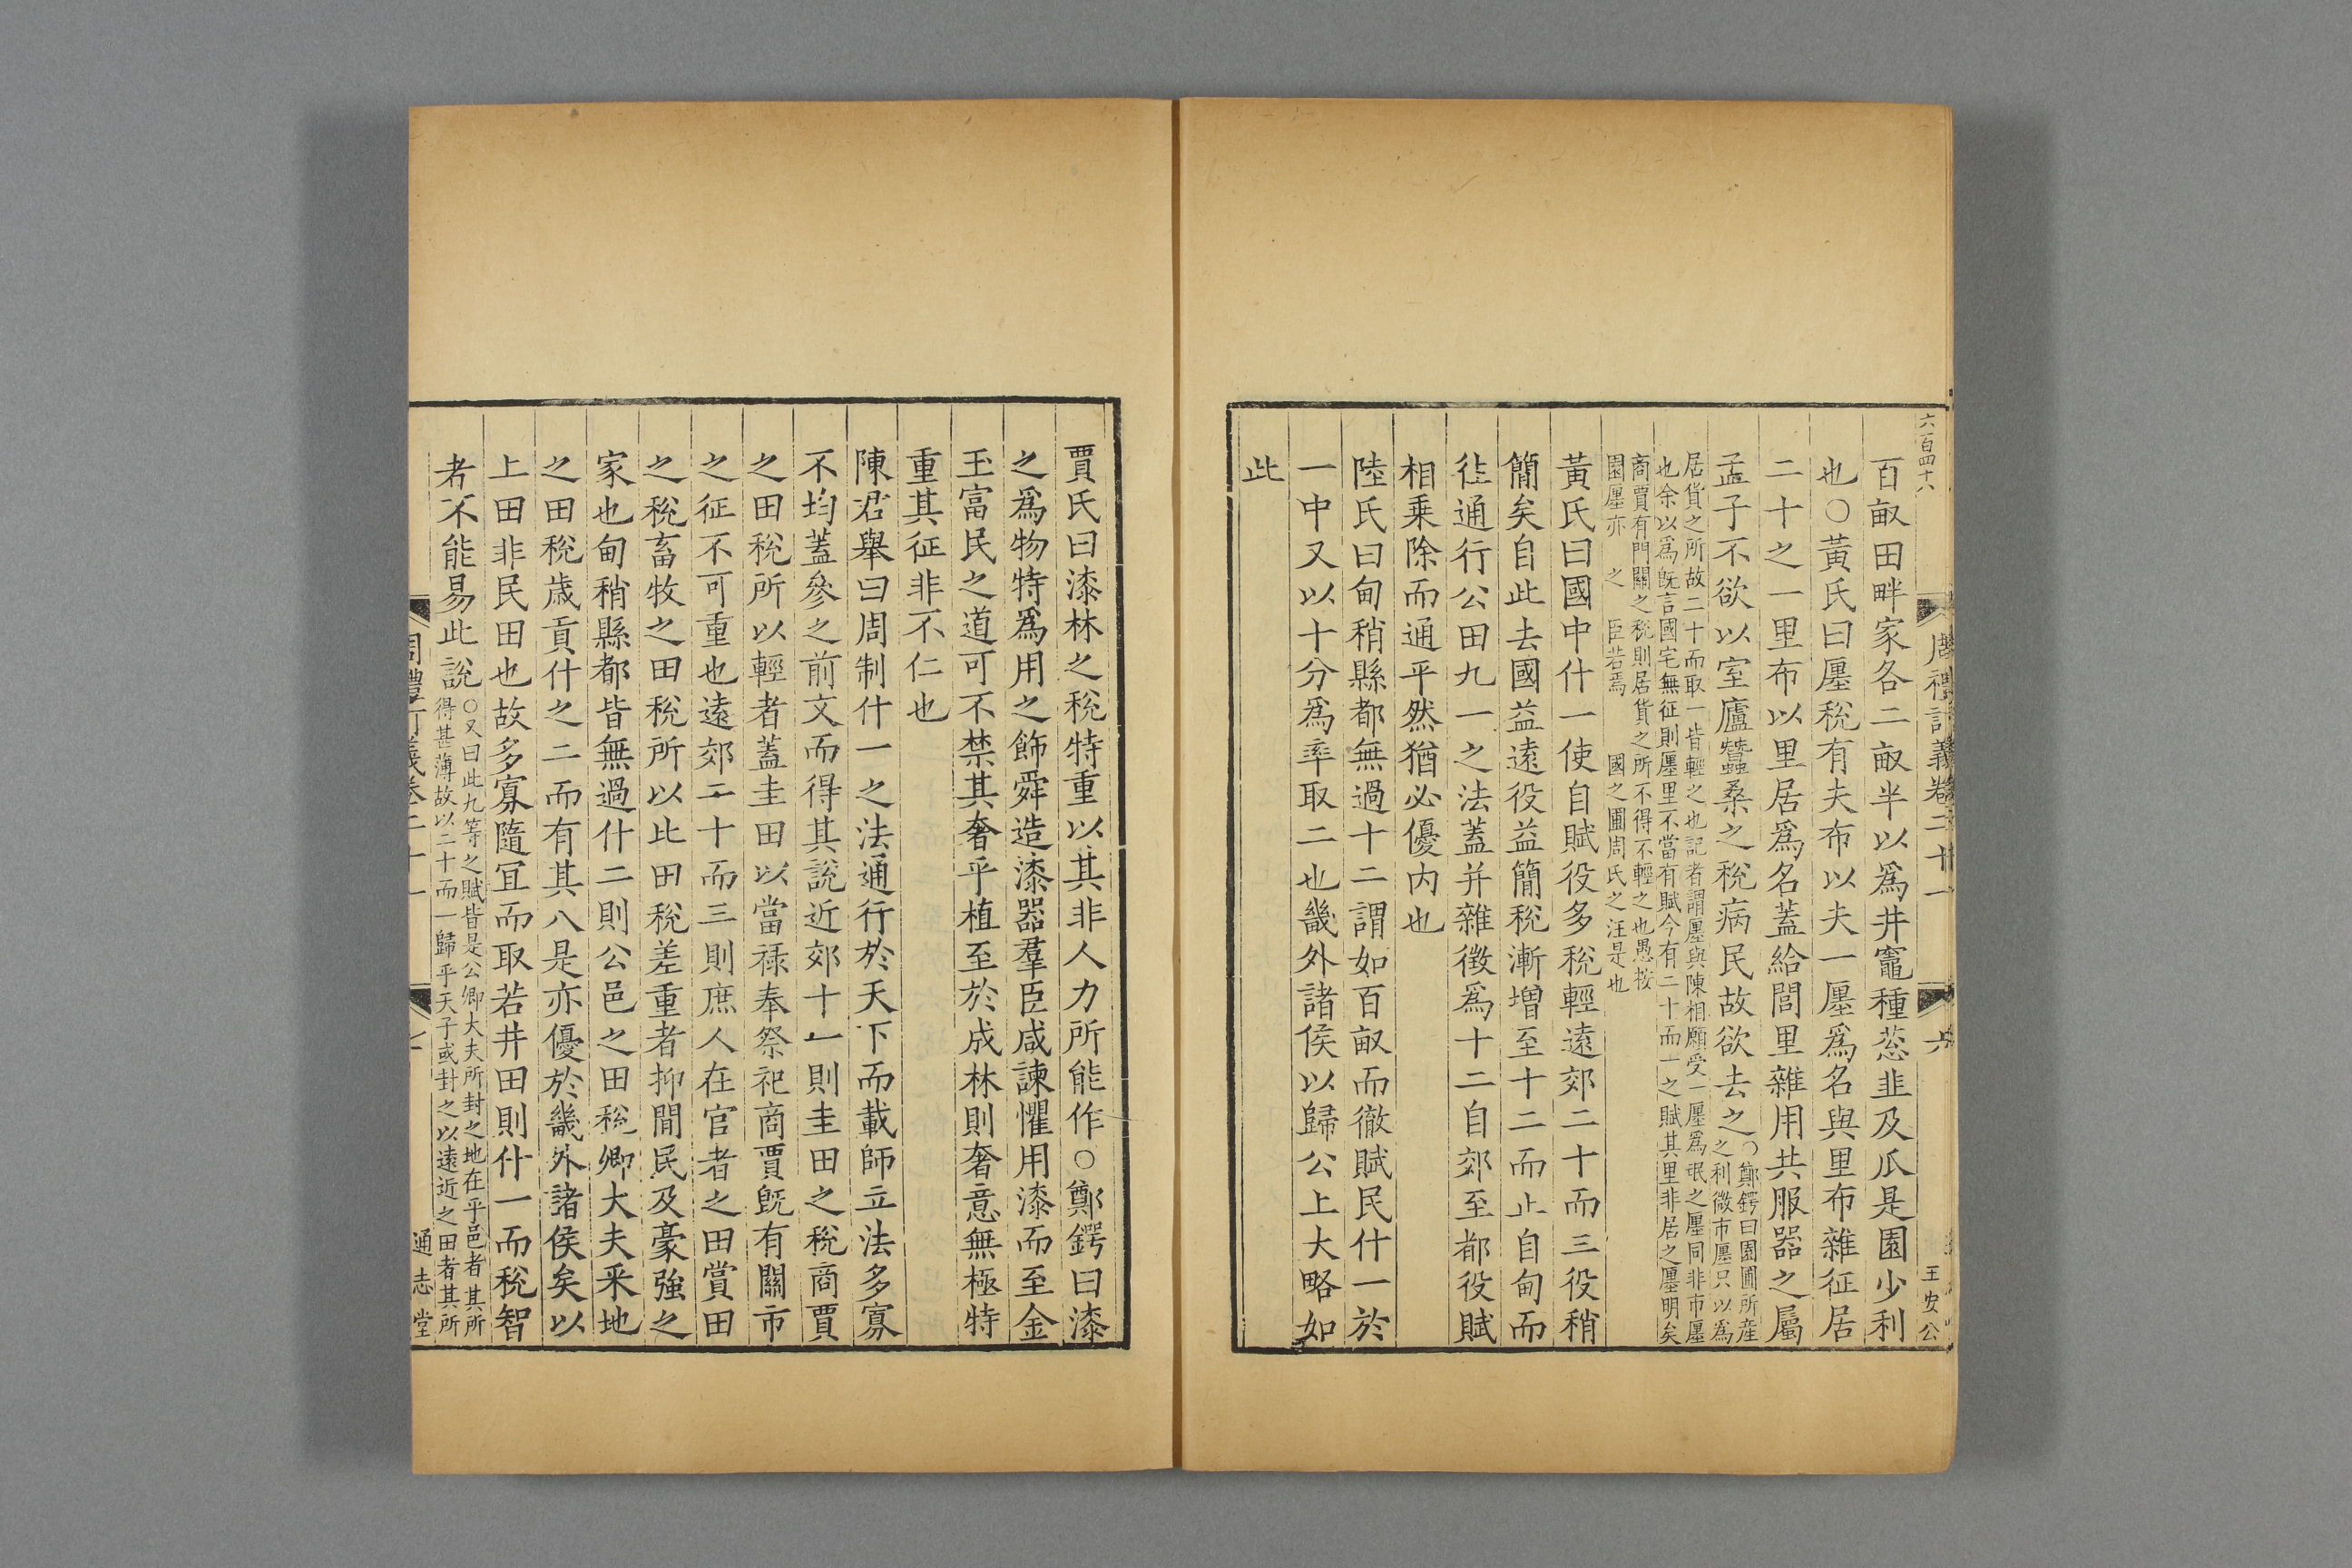 六百四十八
周禮訂義卷二十一
六
王安公
百畝田畔家各二畝半以爲井竈種葱韭及瓜是園少利
也○黃氏曰廛稅有夫布以夫一廛爲名與里布雜征居
二十之一里布以里居爲名蓋給閭里雜用共服器之屬
孟子不欲以室廬蠶桑之稅病民故欲去之○鄭鍔曰園圃所産
之利微市廛只以爲
居貨之所故二十而取一皆輕之也記者謂廛與陳相願受一廛爲氓之廛同非市廛
也余以爲旣言國宅無征則廛里不當有賦今有二十而一之賦其里非居之廛明矣
商賈有門關之稅則居貨之所不得不輕之也愚按
園廛亦之臣若焉國之圃周氏之汪是也
黃氏曰國中什一使自賦役多稅輕遠郊二十而三役稍
簡矣自此去國益遠役益簡稅漸增至十二而止自甸而
徃通行公田九一之法蓋并雜徵爲十二自郊至都役賦
相乗除而通平然猶必優內也
陸氏曰甸稍縣都無過十二謂如百畝而徹賦民什一於
一中又以十分爲率取二也畿外諸侯以歸公上大略如
此
賈氏曰漆林之稅特重以其非人力所能作○鄭鍔曰漆
之爲物特爲用之飾舜造漆器羣臣咸諫懼用漆而至金
玉富民之道可不禁其奢乎植至於成林則奢意無極特
重其征非不仁也
陳君舉曰周制什一之法通行於天下而載師立法多寡
不均蓋參之前文而得其說近郊十一則圭田之稅商賈
之田稅所以輕者蓋圭田以當祿奉祭祀商賈旣有關市
之征不可重也遠郊二十而三則庶人在官者之田賞田
之稅畜牧之田稅所以此田稅差重者抑閒民及豪強之
家也甸稍縣都皆無過什二則公邑之田稅卿大夫采地
之田稅歲貢什之二而有其八是亦優於畿外諸侯矣以
上田非民田也故多寡隨宜而取若井田則什一而稅智
者不能易此說○又曰此九等之賦皆是公卿大夫所封之地在乎邑者其所
得甚薄故以二十而一歸乎天子或封之以遠近之田者其所
周禮訂義卷二十一
七
通志堂